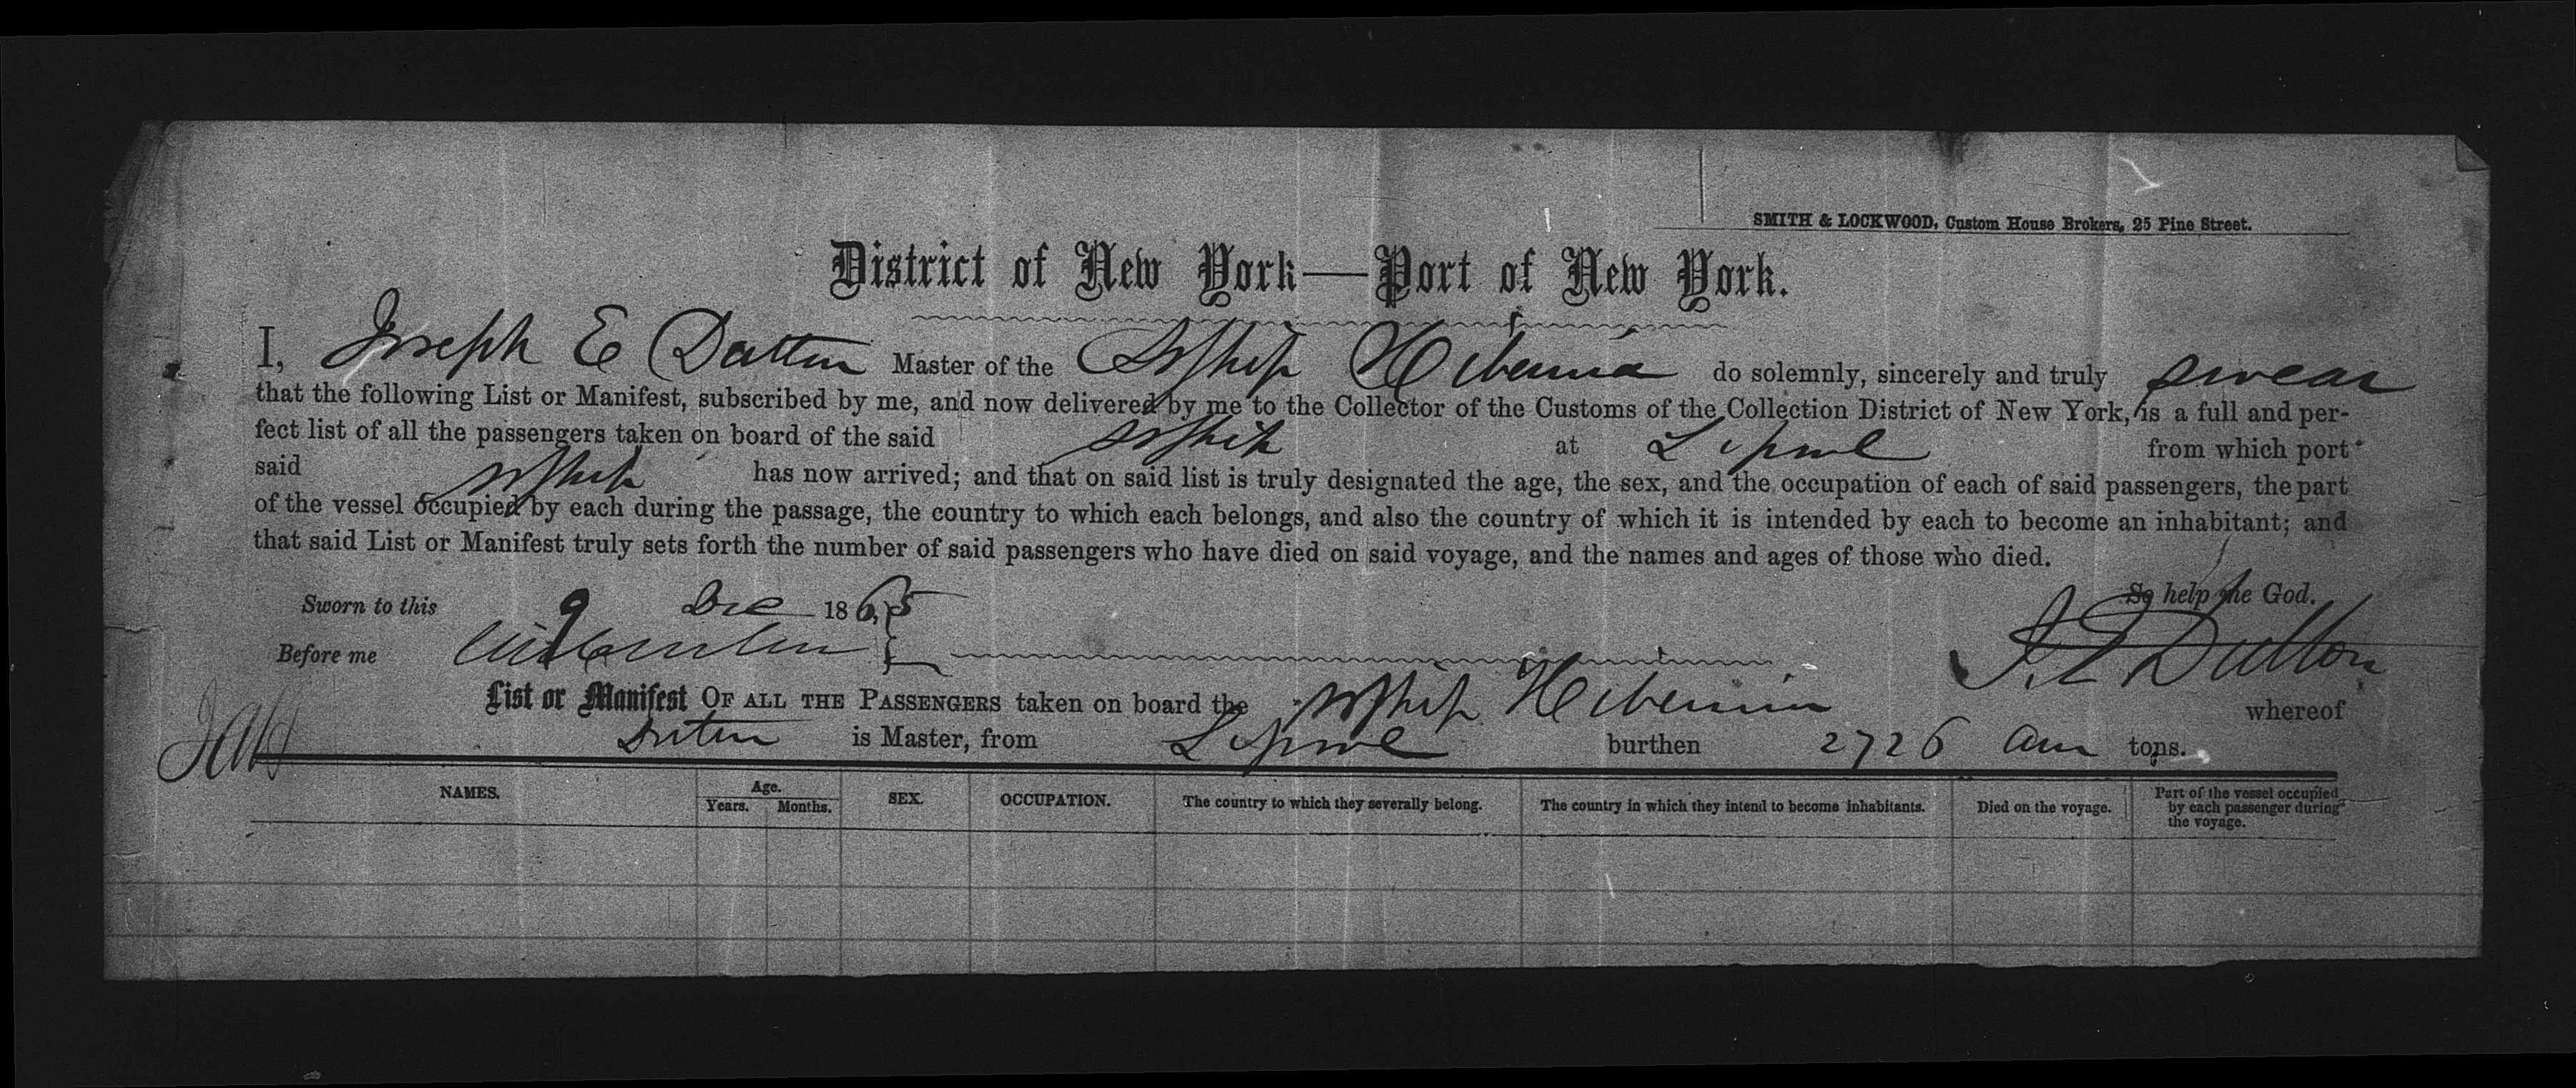 SMITH & LOCKWOOD, Custom House Brokers, 25 Pine Street.
District of New York—Port of New York.
I, Joseph E Dutton Master of the SShip Hibernia do solemnly, sincerely and truly swear
that the following List or Manifest, subscribed by me, and now delivered by me to the Collector of the Customs of the Collection District of New York, is a full and per-
fect list of all the passengers taken on board of the said SShip at Lpool from which port
said SShip has now arrived; and that on said list is truly designated the age, the sex, and the occupation of each of said passengers, the part
of the vessel occupied by each during the passage, the country to which each belongs, and also the country of which it is intended by each to become an inhabitant; and
that said List or Manifest truly sets forth the number of said passengers who have died on said voyage, and the names and ages of those who died.
So help me God.
Sworn to this 9 Dec 1865
Before me
J E Dutton
List or Manifest OF ALL THE PASSENGERS taken on board the SShip Hibernia whereof
Dutton is Master, from Lpool burthen 2726 tons.
NAMES. Age. Years. Months. SEX. OCCUPATION. The country to which they severally belong. The country in which they intend to become inhabitants. Died on the voyage. Part of the vessel occupied by each passenger during the voyage.